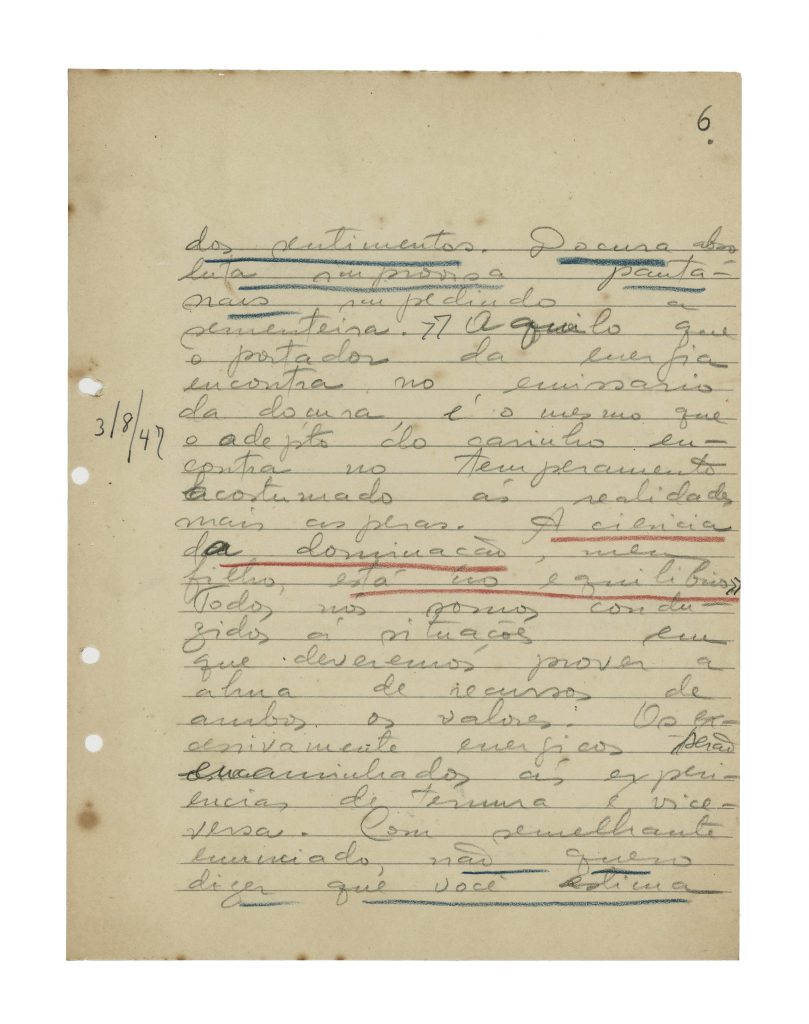 6.
dos sentimentos. Docura abso
luta improvisa panta-
nais impedindo a
sementeira. 77 Aquilo que
o portador da energia
encontra no emissario
da docura, é o mesmo que
3/8/47
o adepto do carinho en-
contra no temperamento
acostumado ás realidades
mais asperas. A ciencia
da dominação, meu
filho, está no equilibrio 77
Todos nós somos condu-
zidos á situações em
que deveremos prover a
alma de recursos de
ambos os valores. Os ex-
cessivamente energicos serão
encaminhados ás experi-
encias de ternura e vice-
versa. Com semelhante
enunciado, não quero
dizer que você estima